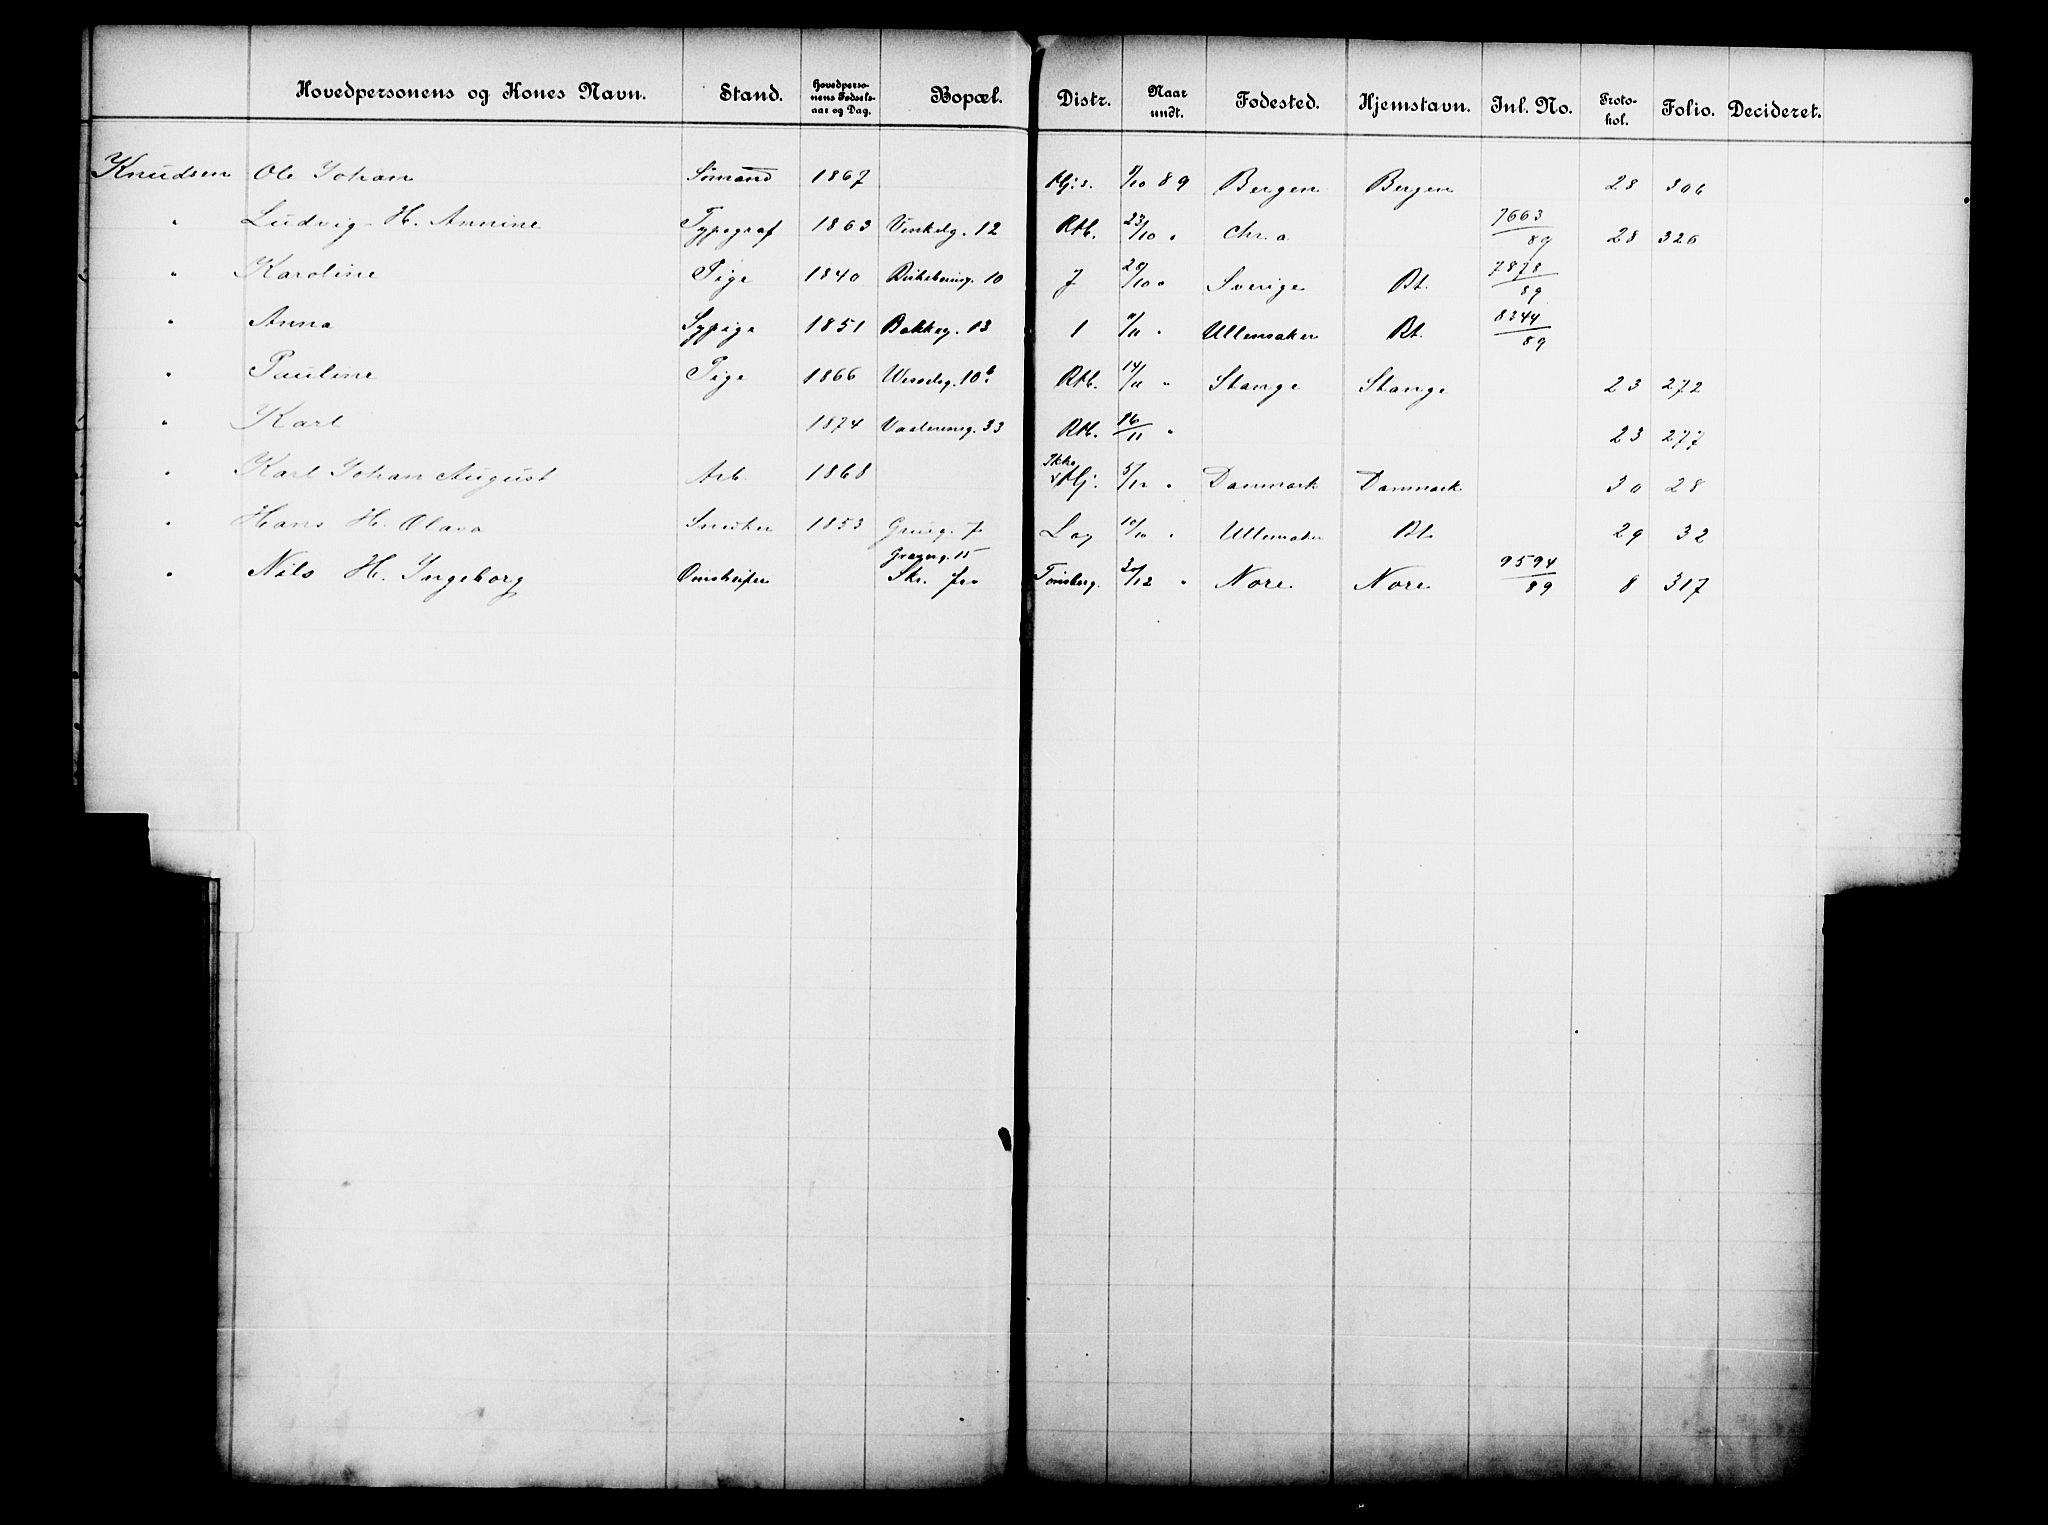 Hovedpersonens og Kones Navn. Stand. Hovedperso-nens Fødsels-aar og Dag. Bopæl. Distr. Naar undt. Fødested. Hjemstavn. Inl. No. Proto-kol. Folio. Decideret.
Knudsen Ole Johan Sømand 1867 Hjs. 89 Bergen Bergen 28 306
" Ludvig H. Annine Typograf 1863 Vinkelg. 12 Rth. 23/10 " Chr.a 7663/89 28 326
" Karoline Pige 1840 10 7 28/10 " Sverige Bt. 7878/89
" Anna Sypige 1851 Bakkeg. 13 1 "/11 " Ullensaker Bt. 8344/89
" Pauline Pige 1866 Wesselsg. 10b. Rth. 14/11 " Stange Stange 23 272
" Karl 1874 Vaalereng. 33 Rth. 16/11 " 23 277
" Karl Johan August Arb. 1868 Ikke Hj. 5/12 " Danmark Danmark 30 28
" Hans H. Olava Snedker 1853 7 10/10 " Ullensaker Bt. 29 32
" Nils H. Ingeborg Graverg. 15 Tønsberg. 20/12 " Nore Nore 9594/89 8 317